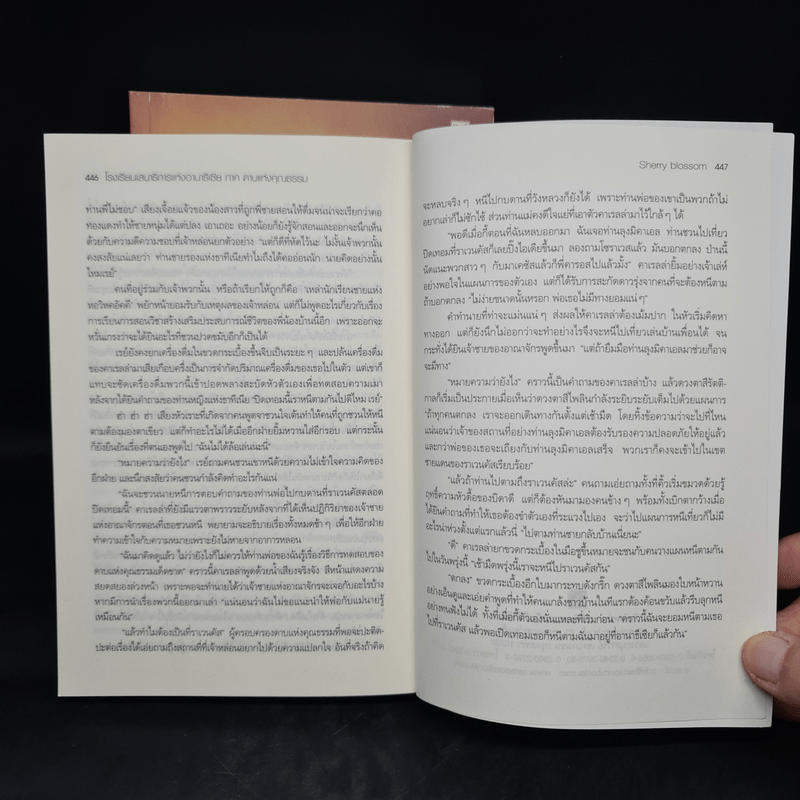 446 โรงเรียนเสนาธิการแห่งอานาธิเซีย ภาค ดาบแห่งคุณธรรม
ท่านพี่ไม่ชอบ" เสียงเจื้อยแจ้วของน้องสาวที่ถูกพี่ชายสอนให้ดื่มจนน่าจะเรียกว่าคอ
ทองแดงทำให้ชายหนุ่มได้แต่ปลง เอาเถอะ อย่างน้อยก็ยังรู้จักสอนและออกจะนึกเห็น
ด้วยกับความดีความชอบที่เจ้าหล่อนยกตัวอย่าง "แต่ก็ดีที่หัดไว้นะ ไม่งั้นเจ้าพวกนั้น
คงสงสัยแน่เลยว่า ท่านชายรองแห่งธาทีเนียทำไมถึงได้คออ่อนนัก นายคิดอย่างนั้น
ไหมเรย์"
คนที่อยู่ร่วมกับเจ้าพวกนั้น หรือถ้าเรียกให้ถูกก็คือ 'เหล่านักเรียนชายแห่ง
หอวิหคอัคคี' พยักหน้ายอมรับกับเหตุผลของเจ้าหล่อน แต่ก็ไม่พูดอะไรเกี่ยวกับเรื่อง
การเรียนการสอนวิชาสร้างเสริมประสบการณ์ชีวิตของพี่น้องบ้านนี้อีก เพราะออกจะ
หวั่นเกรงว่าจะได้ยินอะไรที่ชวนปวดขมับอีกก็เป็นได้
เรย์ยังคงยกเครื่องดื่มในขวดกระเบื้องขึ้นจิบเป็นระยะ ๆ และปล้นเครื่องดื่ม
ของคาเรลล่ามาเสียเกือบครึ่งเป็นการจำกัดปริมาณเครื่องดื่มของเธอไปในตัว แต่เขาก็
แทบจะซัดเครื่องดื่มพวกนี้เข้าปอดพลางสะบัดหัวตัวเองเพื่อทดสอบความเมา
หลังจากได้ยินคำถามของท่านหญิงแห่งธาทีเนีย "ปิดเทอมนี้เราหนีตามกันไปดีไหม เรย์"
ฮ่า ฮ่า ฮ่า เสียงหัวเราะที่เกิดจากคนพูดจาชวนใจเต้นทำให้คนที่ถูกชวนให้หนี
ตามต้องมองตาเขียว แต่ก็ทำอะไรไม่ได้เมื่ออีกฝ่ายยิ้มหวานใส่อีกรอบ แต่กระนั้น
ก็ยังยืนยันเรื่องที่ตนเองพูดไป "ฉันไม่ได้ล้อเล่นนะนี่"
"หมายความว่ายังไง" เรย์ถามคนชวนเขาหนีด้วยความไม่เข้าใจความคิดของ
อีกฝ่าย และนึกสงสัยว่าคนชวนกำลังคิดทำอะไรกันแน่
"ฉันจะชวนนายหนีการตอบคำถามของท่านพ่อไปกบดานที่ราเวนคัสตลอด
ปิดเทอมนี้" คาเรลล่าที่ยังมีแววตาพราวระยับหลังจากที่ได้เห็นปฏิกิริยาของเจ้าชาย
แห่งอาณาจักรตอนที่เธอชวนหนี พยายามจะอธิบายเรื่องทั้งหมดช้า ๆ เพื่อให้อีกฝ่าย
ทำความเข้าใจกับความหมายเพราะยังไม่หายจากอาการหลอน
"ฉันมาคิดดูแล้ว ไม่ว่ายังไงก็ไม่ควรให้ท่านพ่อของฉันรู้เรื่องวิธีการทดสอบของ
ดาบแห่งคุณธรรมเด็ดขาด" คราวนี้คาเรลล่าพูดด้วยน้ำเสียงจริงจัง สีหน้าแสดงความ
สยดสยองล่วงหน้า เพราะพอจะทำนายได้ว่าเจ้าชายแห่งอาณาจักรจะเจอกับอะไรบ้าง
หากมีการนำเรื่องพวกนี้ออกมาเล่า "แน่นอนว่าฉันไม่ขอแนะนำให้พ่อกับแม่นายรู้
เหมือนกัน"
"แล้วทำไมต้องเป็นที่ราเวนคัส" ผู้ครอบครองดาบแห่งคุณธรรมที่พอจะปะติด-
ปะต่อเรื่องได้เอ่ยถามถึงสถานที่ที่เจ้าหล่อนอยากไปด้วยความแปลกใจ อันที่จริงถ้าคิด
Sherry blossom 447
จะหลบจริง ๆ หนีไปกบดานที่วังหลวงก็ยังได้ เพราะท่านพ่อของเขาเป็นพวกถ้าไม่
อยากเล่าก็ไม่ซักไซ้ ส่วนท่านแม่คงดีใจแย่ที่เอาตัวคาเรลล่ามาไว้ใกล้ ๆ ได้
"พอดีเมื่อกี้ตอนที่ฉันหลบออกมา ฉันเจอท่านลุงมิคาเอล ท่านชวนไปเที่ยว
ปิดเทอมที่ราเวนคัสก็เลยปิ๊งไอเดียขึ้นมา ลองถามโซราเวสแล้ว มันบอกตกลง ป่านนี้
นัดแนะพวกสาว ๆ กับมาเคซัสแล้วก็พี่คารอสไปแล้วมั้ง" คาเรลล่ายิ้มอย่างเจ้าเล่ห์
อย่างพอใจในแผนการของตัวเอง แต่ก็ได้รับการสะกัดดาวรุ่งจากคนที่จะต้องหนีตาม
ถ้าบอกตกลง "ไม่ง่ายขนาดนั้นหรอก พ่อเธอไม่มีทางยอมแน่ ๆ"
คำทำนายที่ท่าจะแม่นแน่ ๆ ส่งผลให้คาเรลล่าต้องเม้มปาก ในหัวเริ่มคิดหา
ทางออก แต่ก็ยังนึกไม่ออกว่าจะทำอย่างไรจึงจะหนีไปเที่ยวเล่นบ้านเพื่อนได้ จน
กระทั่งได้ยินเจ้าชายของอาณาจักรพูดขึ้นมา "แต่ถ้ายืมมือท่านลุงมิคาเอลมาช่วยก็อาจ
จะมีทาง"
"หมายความว่ายังไง" คราวนี้เป็นคำถามของคาเรลล่าบ้าง แล้วดวงตาสีรัตติ-
กาลก็เริ่มเป็นประกายเมื่อเห็นว่าดวงตาสีไพลินกำลังระยิบระยับเต็มไปด้วยแผนการ
"ถ้าทุกคนตกลง เราจะออกเดินทางกันตั้งแต่เช้ามืด โดยทิ้งข้อความว่าจะไปที่ไหน
แน่นอนว่าเจ้าของสถานที่อย่างท่านลุงมิคาเอลต้องรับรองความปลอดภัยให้อยู่แล้ว
และกว่าพ่อของเธอจะเถียงกับท่านลุงมิคาเอลเสร็จ พวกเราก็คงจะไปในเขต
ชายแดนของราเวนคัสเรียบร้อย"
"แล้วถ้าท่านไปตามถึงราเวนคัสล่ะ" คนถามเอ่ยถามทั้งที่คิ้วเริ่มขมวดด้วยรู้
ฤทธิ์ความหัวดื้อของบิดาดี แต่ก็ต้องหันมามองคนข้าง ๆ พร้อมทั้งเบิกตากว้างเมื่อ
ได้ยินคำถามที่ทำให้เธอต้องขำตัวเองที่ระแวงไปเอง จะว่าไปแผนการหนีเที่ยวก็ไม่มี
อะไรน่าห่วงตั้งแต่แรกแล้วนี่ "ไปตามท่านชายกลับบ้านเนี่ยนะ"
"ดี" คาเรลล่ายกขวดกระเบื้องในมือชูขึ้นหมายจะชนกับคนวางแผนหนีตามกัน
ไปในวันพรุ่งนี้ "เช้ามืดพรุ่งนี้เราจะหนีไปราเวนคัสกัน"
"ตกลง" ขวดกระเบื้องอีกใบมากระทบดังกริ๊ก ดวงตาสีไพลินมองใบหน้าหวาน
อย่างเอ็นดูและเอ่ยคำพูดที่ทำให้คนแกล้งชาวบ้านในทีแรกต้องค้อนขวับแล้วรีบลุกหนี
อย่างทนฟังไม่ได้ ทั้งที่เมื่อกี้ตัวเองนั่นแหละที่เริ่มก่อน "คราวนี้ฉันจะยอมหนีตามเธอ
ไปที่ราเวนคัส แล้วพอเปิดเทอมเธอก็หนีตามฉันมาอยู่ที่อานาธิเซียก็แล้วกัน"